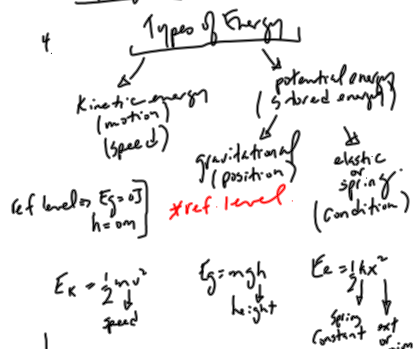 4
Types of Energy
kinetic energy
(motion)
(speed)
potential energy
(stored energy)
gravitational
(position)
elastic
or
spring
(condition)
ref level => Eg=0J
h=0m
*ref. level.
Ek = 1/2 mv²
speed
Eg=mgh
height
Ee = 1/2 kx²
spring
constant
ext
or